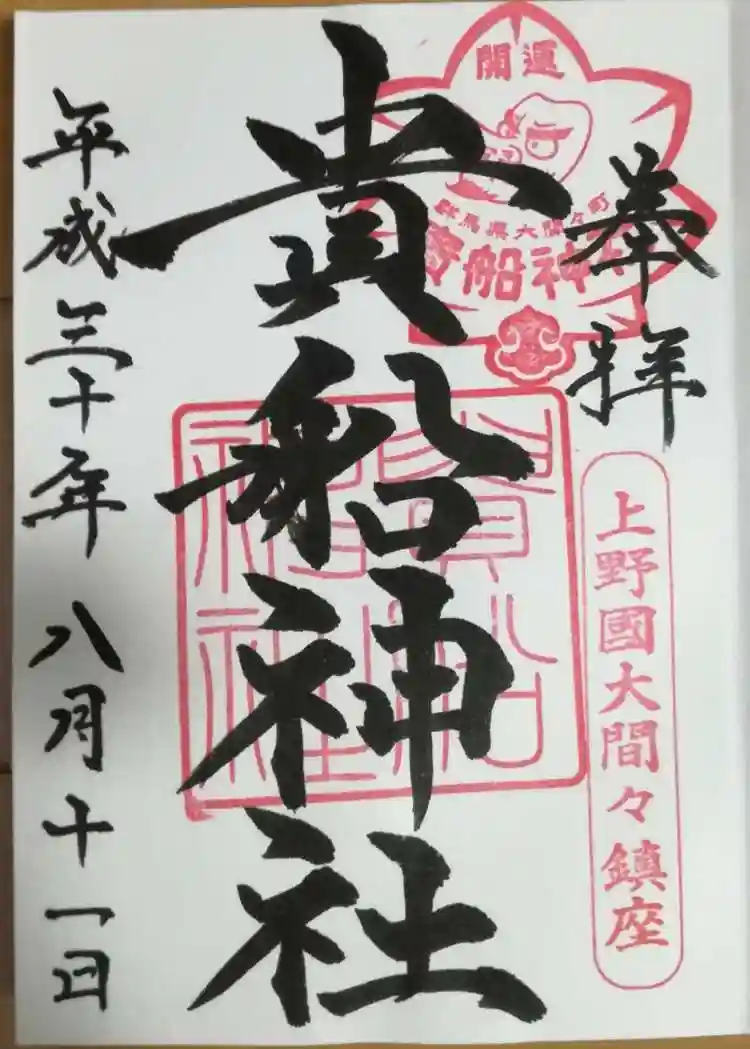 奉拝
上野國大間々鎮座
開運
群馬県大間々町
貴船神社
貴船神社
貴船神社
平成三十年八月十一日